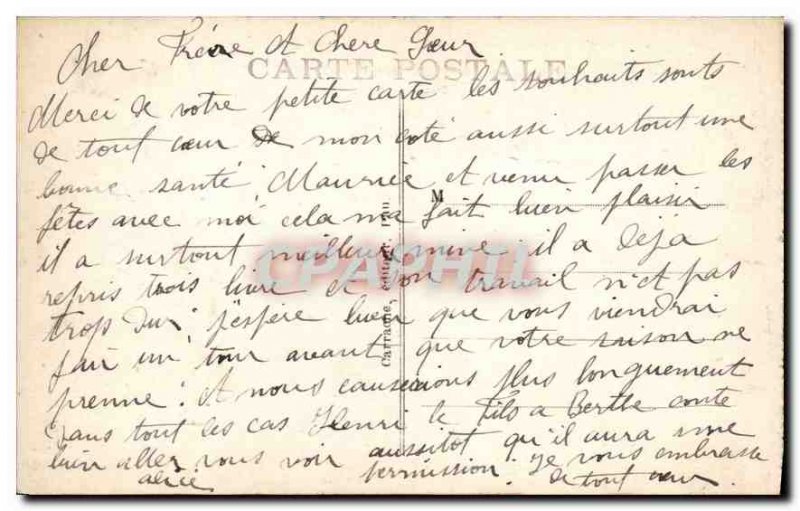 Cher Frère et Chere Sœur
CARTE POSTALE
Merci de votre petite carte les souhaits sonts
de tout cœur de mon coté aussi surtout une
bonne santé Maurice et venu passer les
fêtes avec moi cela ma fait bien plaisir
M
il a surtout meilleur mine il a Déja
repris trois livre et son travail n'et pas
trop Dur j'espère bien que vous viendrai
fair un tour avant que votre saison ne
prenne : et nous causerions plus longuement
Dans tout les cas Henri le fils a Berthe conte
bien aller vous voir aussitot qu'il aura une
permission. Je vous embrasse
alice de tout cœur.
Carrache, éditeur, Pau
CPAPHIL